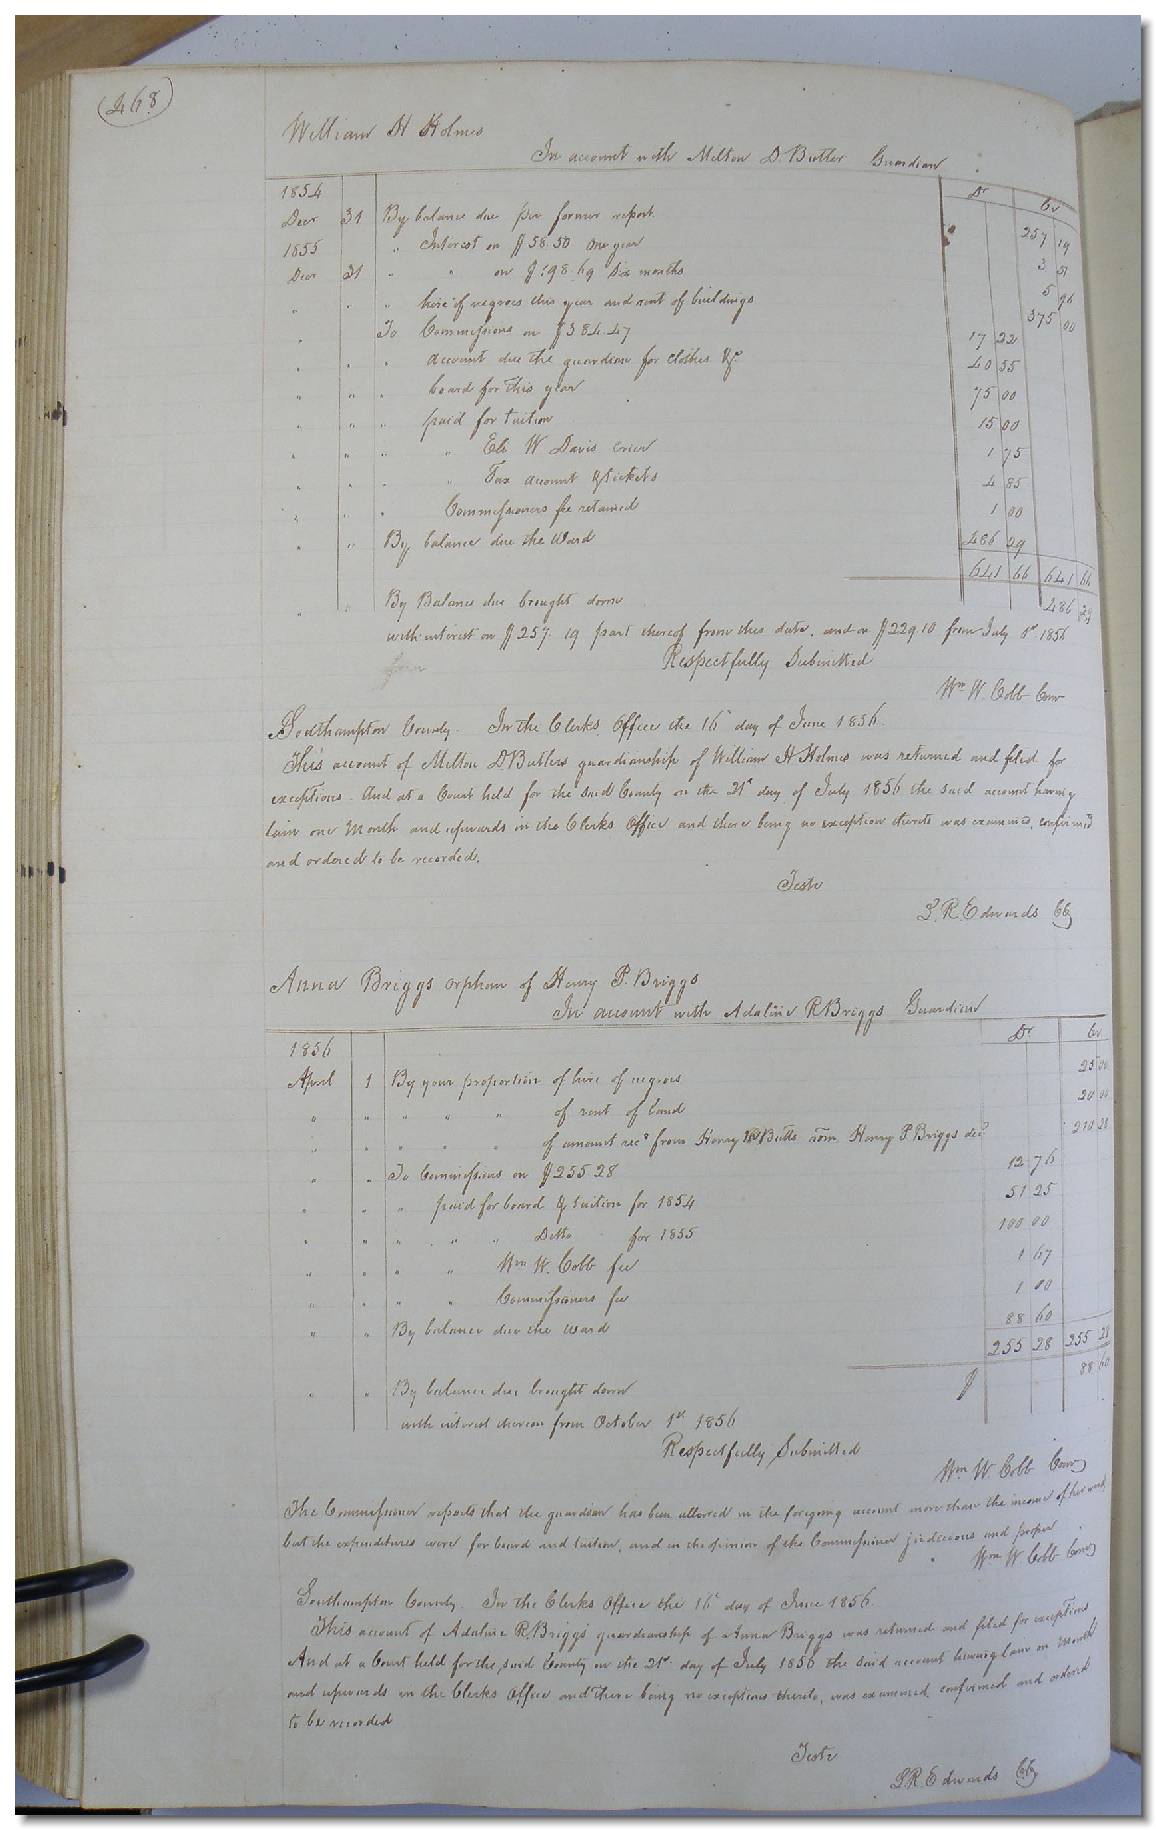 (468)
William H Holmes
In account with Milton D. Butler Guardian
Dr Cr
1854
Decr 31 By balance due per former report 257 19
1855 " Interest on $58.50 one year 3 51
Decr 31 " " on $198.69 Six months 5 96
" " " hire of negroes this year and rent of buildings 375 00
" To Commissions on $384.47 17 22
" " " account due the guardian for clothes &c 40 55
" " " board for this year 75 00
" " " paid for tuition 15 00
" " " " Eli W Davis crier 1 75
" " " " Tax account & tickets 4 85
" " " Commissioners fee retained 1 00
" " By balance due the Ward 486 29
641 66 641 66
" " By Balance due brought down 486 29
with interest on $257.19 part thereof from this date, and on $229.10 from July 1st 1856
Respectfully Submitted
Wm W. Cobb Comr
Southampton County. In the Clerks Office the 16 day of June 1856.
This account of Milton D Butlers guardianship of William H Holmes was returned and filed for
exceptions. And at a Court held for the said County on the 21st day of July 1856 the said account having
lain one Month and upwards in the Clerks Office and there being no exception thereto was examined, confirmed
and ordered to be recorded.
Teste
L. R. Edwards CC
Anna Briggs orphan of Henry P. Briggs
In account with Adaline R Briggs Guardian
Dr Cr
1856
April 1 By your proportion of hire of negroes 25 00
" " " " " of rent of land 20 00
" " " " " of amount recd from Henry Butts Henry P Briggs decd 210 28
" " To Commissions on $255 28 12 76
" " " paid for board & tuition for 1854 51 25
" " " " " Ditto for 1855 100 00
" " " " Wm W. Cobb fee 1 67
" " " " Commissioners fee 1 00
" " By balance due the Ward 88 60
255 28 255 28
" " By balance due brought down $ 88 60
with interest thereon from October 1st 1856
Respectfully Submitted
Wm W. Cobb Comr
The Commissioner reports that the guardian has been allowed in the foregoing account more than the income of her ward
but the expenditures were for board and tuition, and in the opinion of the Commissioner judicious and proper
Wm W Cobb Comr
Southampton County. In the Clerks Office the 16 day of June 1856.
This account of Adaline R. Briggs' guardianship of Anna Briggs was returned and filed for exceptions
And at a Court held for the said County on the 21st day of July 1856 the said account having lain on Month
and upwards in the Clerks Office and there being no exceptions thereto, was examined, confirmed and ordered
to be recorded
Teste
L R Edwards CC